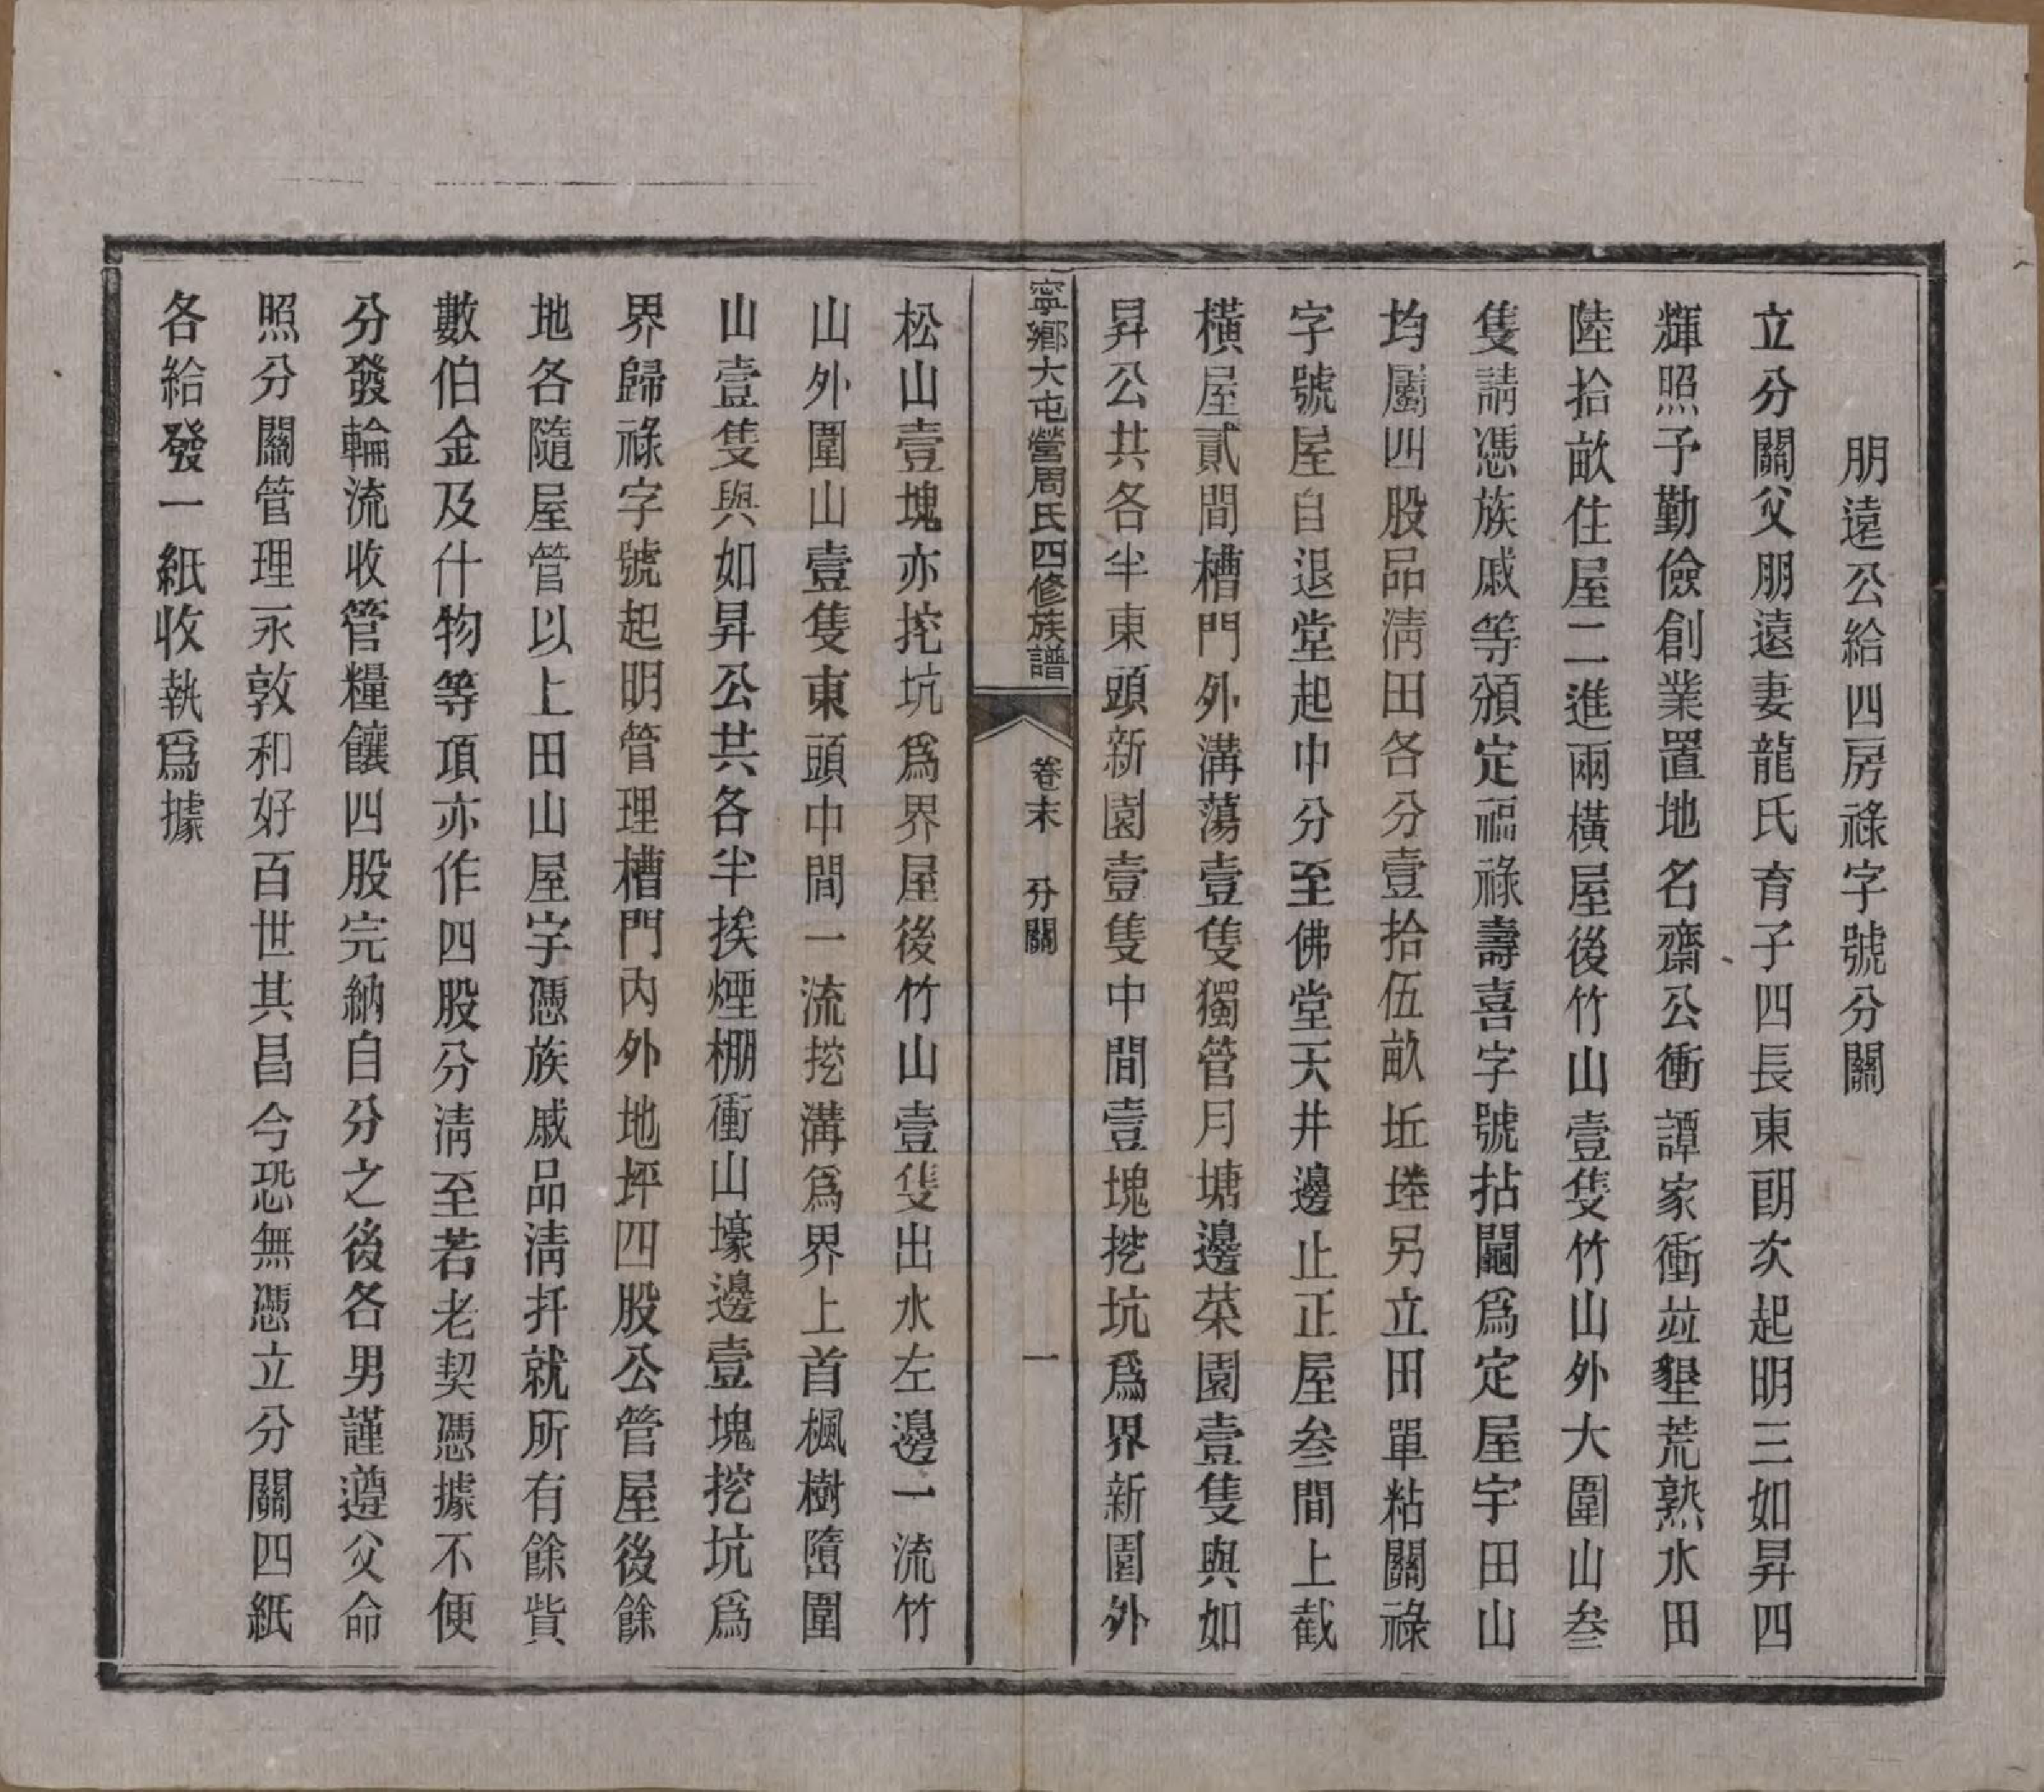 朋遠公給四房祿字號分關
立分關父朋遠妻龍氏育子四長東朗次起明三如昇四
輝照予勤儉創業置地名齋公衝譚家衝並墾荒熟水田
陸拾畝住屋二進兩橫屋後竹山壹隻竹山外大圍山叁
隻請憑族戚等頒定福祿壽喜字號拈鬮爲定屋宇田山
均屬四股品清田各分壹拾伍畝坵塅另立田單粘關祿
字號屋自退堂起中分至佛堂天井邊止正屋叁間上截
橫屋貳間槽門外溝蕩壹隻獨管月塘邊菜園壹隻與如
昇公共各半東頭新園壹隻中間壹塊挖坑爲界新園外
寧鄉大屯營周氏四修族譜
卷末 分關
一
松山壹塊亦挖坑爲界屋後竹山壹隻出水左邊一流竹
山外圍山壹隻東頭中間一流挖溝爲界上首楓樹墮圍
山壹隻與如昇公共各半挨煙棚衝山壕邊壹塊挖坑爲
界歸祿字號起明管理槽門內外地坪四股公管屋後餘
地各隨屋管以上田山屋宇憑族戚品清扦就所有餘貲
數伯金及什物等項亦作四股分清至若老契憑據不便
分發輪流收管糧饟四股完納自分之後各男謹遵父命
照分關管理永敦和好百世其昌今恐無憑立分關四紙
各給發一紙收執爲據